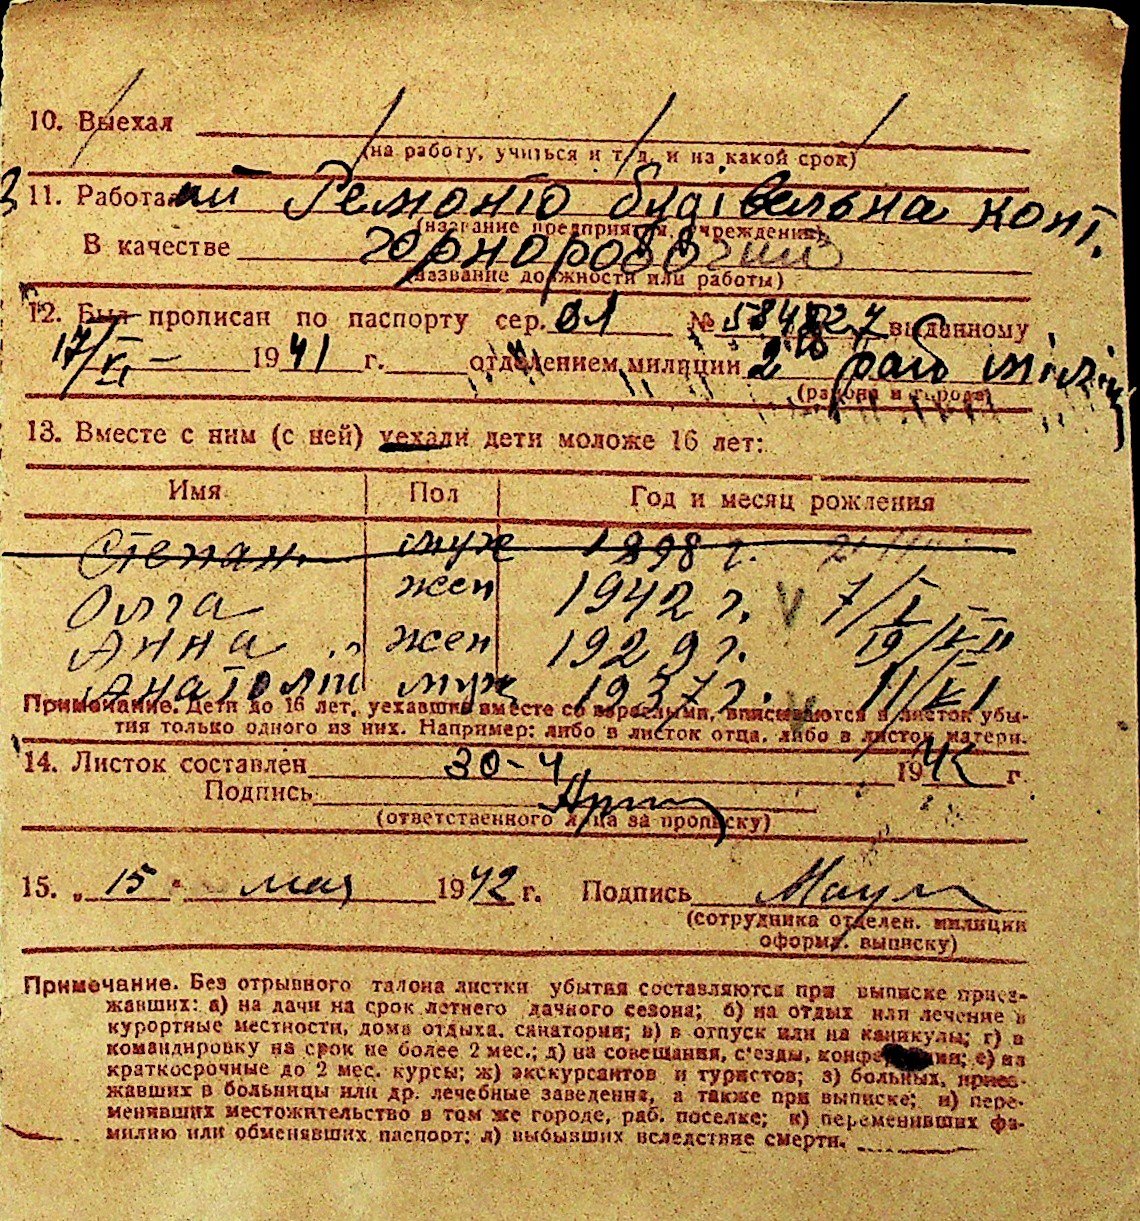 10. Выехал
(на работу, учиться и т. д. и на какой срок)
11. Работа Ремонто будівельна конт.
(название предприятия, учреждения)
В качестве чорноробочий
(название должности или работы)
12. Был прописан по паспорту сер. № 584827 выданному
17/XI — 1941 г. отделением милиции 2
(района и города)
13. Вместе с ним (с ней) уехали дети моложе 16 лет:
Имя Пол Год и месяц рождения
Степан муж 1898 г.
Олга жен 1942 г. V 7/I
Анна жен 1929 г. 19/XII
Анатолій муж 1937 г. V 11/XI
Примечание. Дети до 16 лет, уехавшие вместе со взрослыми, вписываются в листок убы-
тия только одного из них. Например: либо в листок отца, либо в листок матери.
14. Листок составлен 30-4 1942 г
Подпись
(ответственного лица за прописку)
15. „ 15 " мая 1942 г. Подпись
(сотрудника отделен. милиции
оформ. выписку)
Примечание. Без отрывного талона листки убытия составляются при выписке приез-
жавших: а) на дачи на срок летнего дачного сезона; б) на отдых или лечение в
курортные местности, дома отдыха, санатории; в) в отпуск или на каникулы; г) в
командировку на срок не более 2 мес.; д) на совещания, с'езды, конференции; е) на
краткосрочные до 2 мес. курсы; ж) экскурсантов и туристов; з) больных, приез-
жавших в больницы или др. лечебные заведения, а также при выписке; и) пере-
менивших местожительство в том же городе, раб. поселке; к) переменивших фа-
милию или обменявших паспорт; л) выбывших вследствие смерти.